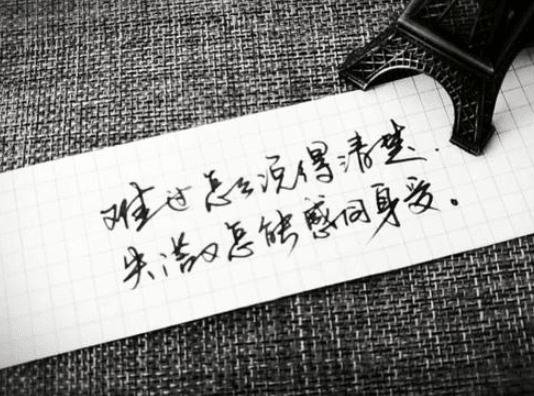 难过怎么说得清楚.
失落又怎能感同身受。